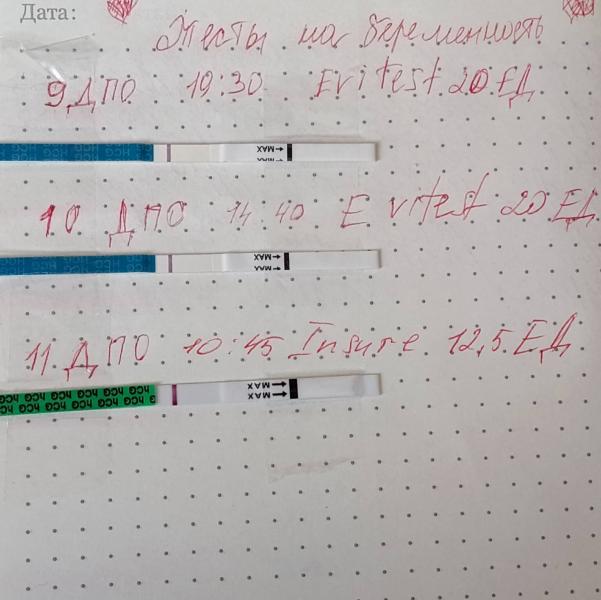 Дата:
Тесты на беременность
9 ДПО 19:30 Evitest 20 ЕД
MAX
10 ДПО 14:40 Evitest 20 ЕД
MAX
MAX
11 ДПО 10:45 Insure 12,5 ЕД
HCG HCG HCG HCG HCG
HCG HCG HCG HCG HCG
MAX
MAX